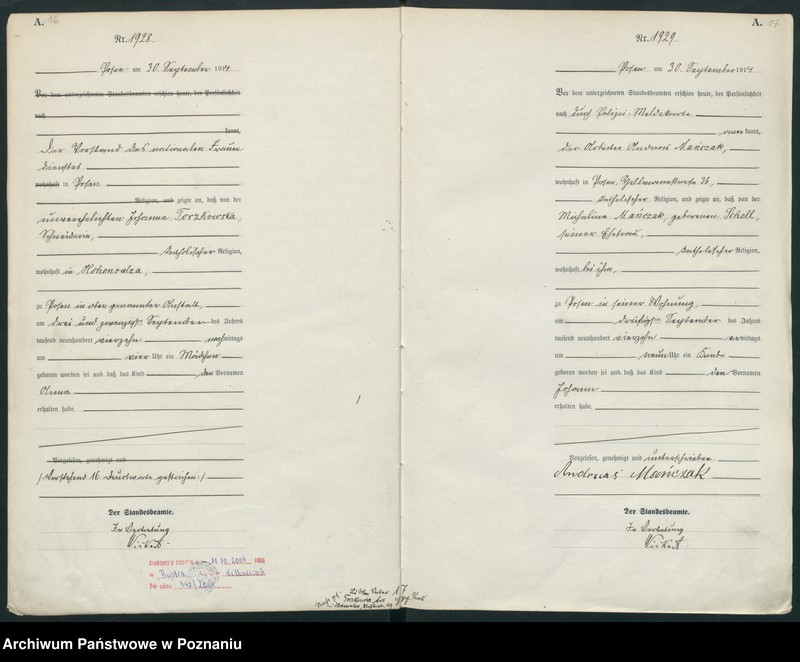 A. 16
Nr. 1928.
Posen am 30. September 1914
Vor dem unterzeichneten Standesbeamten erschien heute, der Persönlichkeit
nach
kannt,
Der Vorstand des nationalen Frauen
dienstes
wohnhaft in Posen
Religion, und zeigte an, daß von der
unverehelichten Johanna Torzkowska,
Schneiderin,
katholischer Religion,
wohnhaft in Hohensalza,
zu Posen in oben genannter Anstalt,
am drei und zwanzigsten September des Jahres
tausend neunhundert vierzehn nachmittags
um vier Uhr ein Mädchen
geboren worden sei und daß das Kind den Vornamen
Anna
erhalten habe.
Vorgelesen, genehmigt und
(Vorstehend 16 Druckworte gestrichen.)
Der Standesbeamte.
In Vertretung
10.10.2004
Nr aktu
A. 17
Nr. 1929.
Posen am 30. September 1914
Vor dem unterzeichneten Standesbeamten erschien heute, der Persönlichkeit
nach durch Polizei-Meldekarte
anerkannt,
der Arbeiter Andreas Mańczak,
wohnhaft in Posen, 36,
katholischer Religion, und zeigte an, daß von der
Michalina Mańczak, geborenen Scholl,
seiner Ehefrau,
katholischer Religion,
wohnhaft bei ihm,
zu Posen in seiner Wohnung,
am dreißigsten September des Jahres
tausend neunhundert vierzehn vormittags
um neun Uhr ein Knabe
geboren worden sei und daß das Kind den Vornamen
Johann
erhalten habe.
Vorgelesen, genehmigt und unterschrieben.
Andreas Mańczak
Der Standesbeamte.
In Vertretung
Archiwum Państwowe w Poznaniu